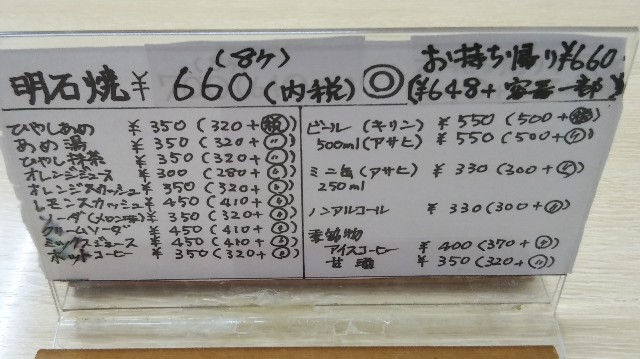 (8ケ)
明石焼 ¥660(内税) ◎
お持ち帰り¥660
(¥648+容器一部)
ひやしあめ ¥350(320+税)
あめ湯 ¥350(320+〃)
ひやし抹茶 ¥350(320+〃)
オレンジジュース ¥300(280+〃)
オレンジスカッシュ ¥350(320+〃)
レモンスカッシュ ¥450(410+〃)
ソーダ(メロン味) ¥350(320+〃)
クリームソーダ ¥450(410+〃)
ミックスジュース ¥450(410+〃)
ホットコーヒー ¥350(320+〃)
ビール(キリン) ¥550(500+税)
500ml(アサヒ) ¥550(500+〃)
ミニ缶(アサヒ) ¥330(300+〃)
250ml
ノンアルコール ¥330(300+〃)
季節物
アイスコーヒー ¥400(370+〃)
甘酒 ¥350(320+〃)